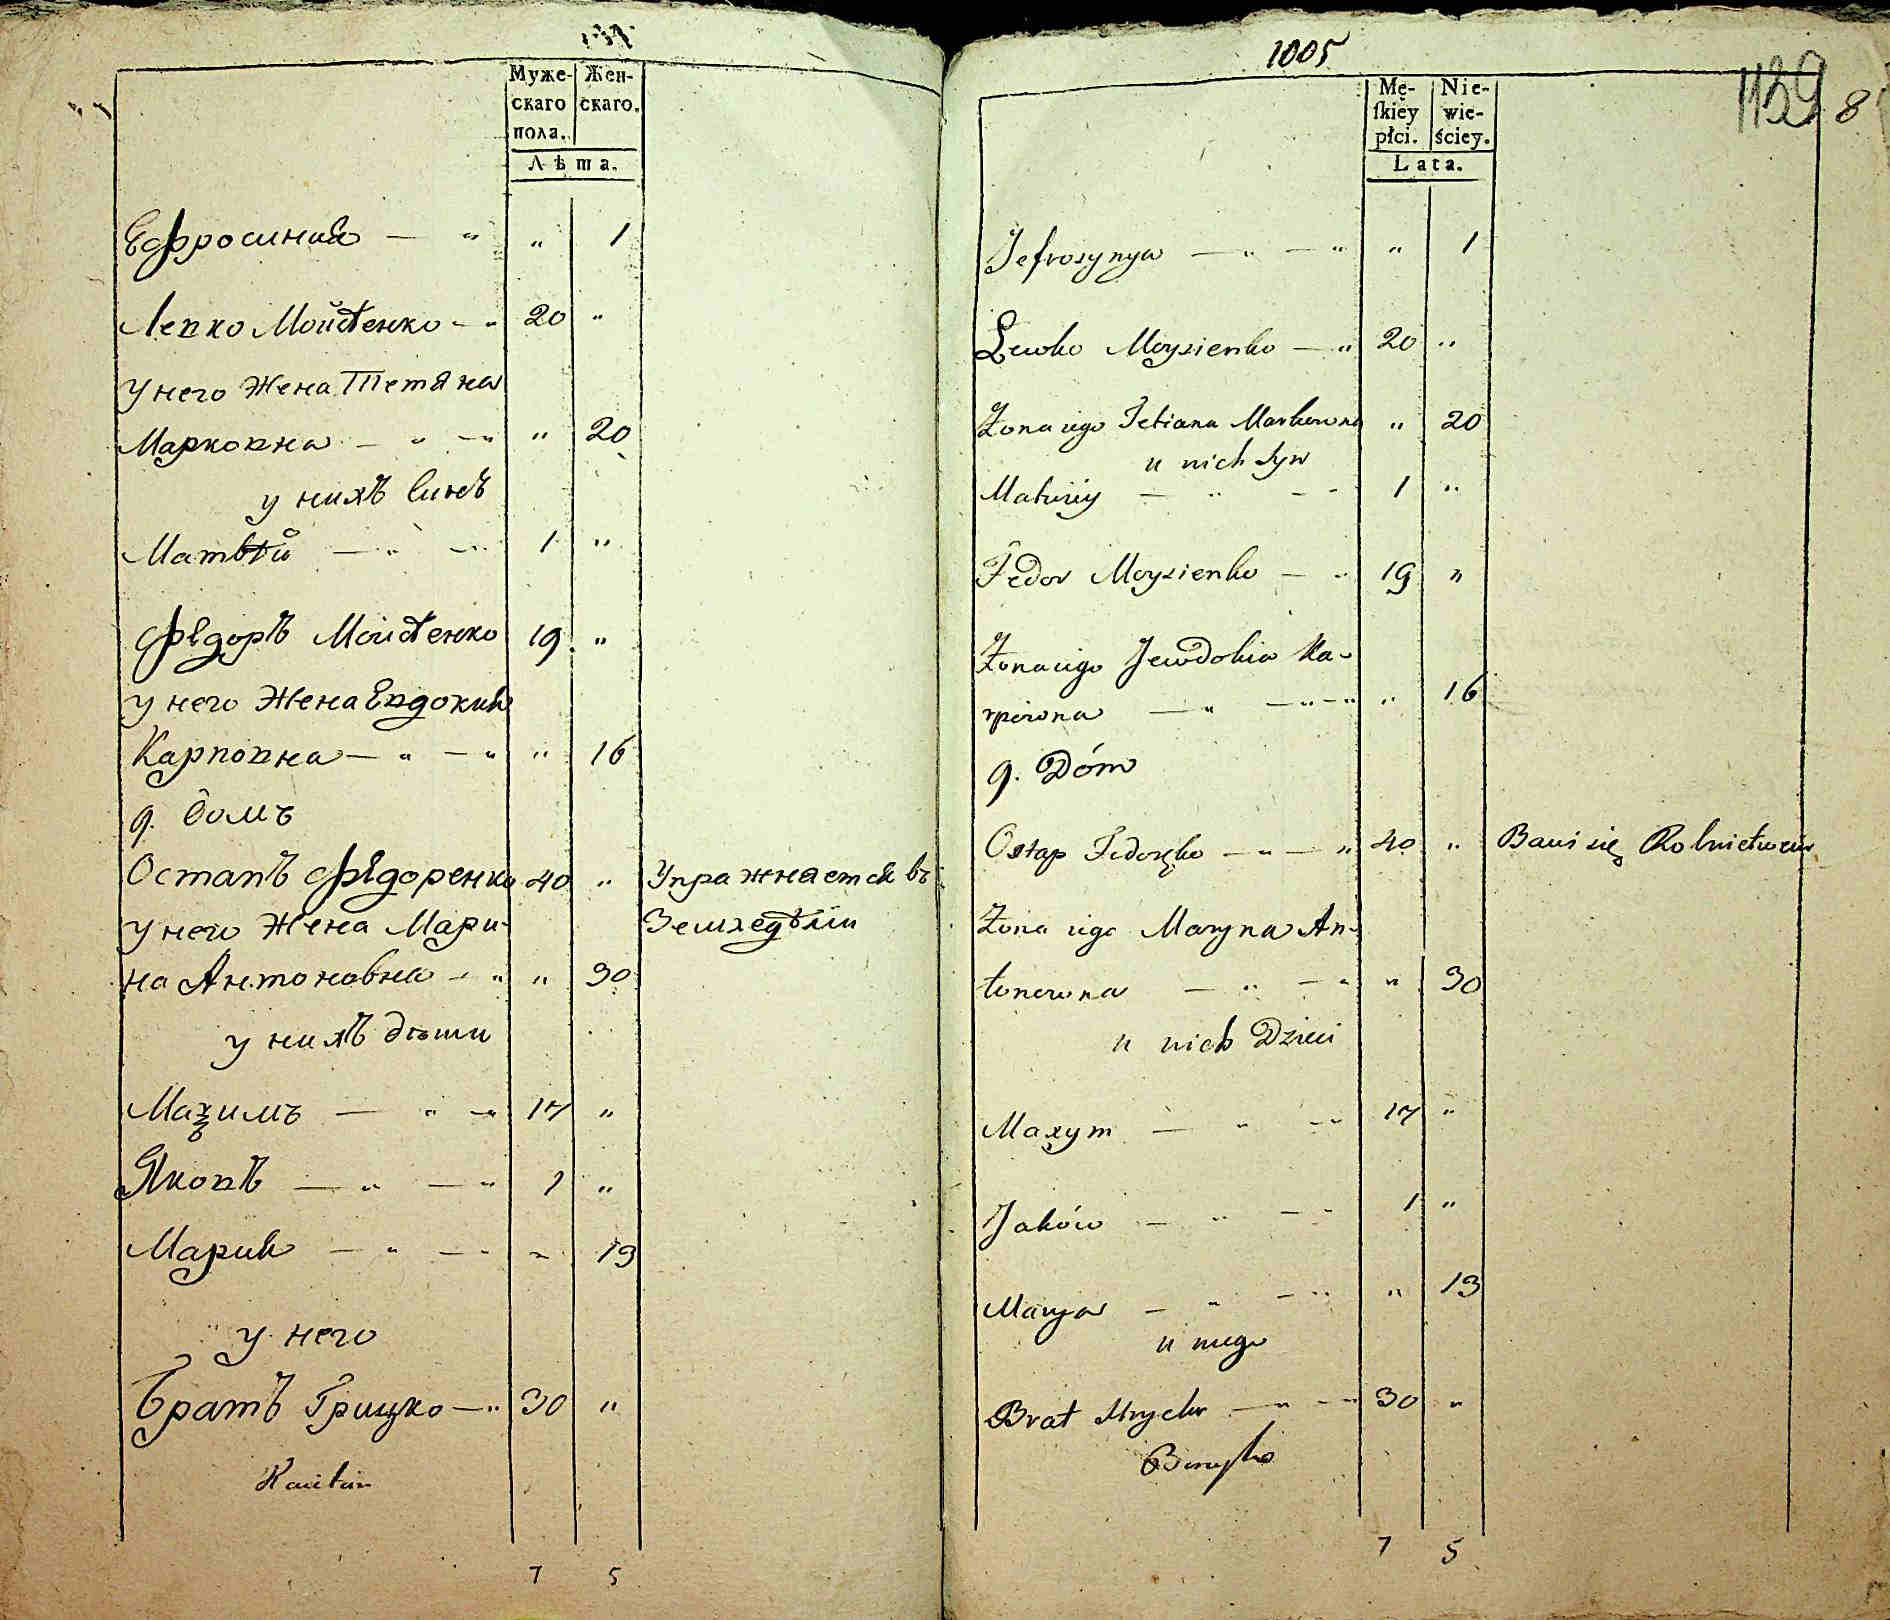 Муже-
скаго
пола.
Жен-
скаго.
Лѣта.
Ефросиния — „ „ 1
Левко Мойсѣенко - „ 20 „
у него Жена Тетяна
Марковна — „ — „ „ 20
у нихъ Синъ
Матвѣй — „ — „ 1 „
Фѣдоръ Мойсѣенко 19 „
у него Жена Евдокия
Карповна — „ — „ „ 16
9. Домъ
Остапъ Фѣдоренко 40 „ Упражняется въ
у него Жена Мари- Земледѣлии
на Антоновна - „ „ 30
у нихъ дѣти
Маѯимъ — „ - „ 17 „
Яковъ — „ — „ 1 „
Мария — „ — „ „ 13
у него
Братъ Грицко — „ 30 „
7 5
1005
1139
8
Mę-
skiéy
płci.
Nie-
wie-
ściey.
Lata.
Jefrosynya — „ — „ „ 1
Lewko Moysienko — „ 20 „
Żona iego Tetiana Markowna „ 20
u nich Syn
Matwiy — „ - - 1 „
Fedor Moysienko — „ 19 „
Żona iego Jewdokia Ka-
rpowna — „ — „ — „ „ 16
9. Dóm
Ostap Fedoręko — „ — „ 40 „ Bawi się Rolnictwem
Żona iego Maryna An-
tonowna — „ — „ „ 30
u nich Dzieci
Maxym — „ - „ 17 „
Jaków — „ — „ 1 „
Marya — „ — „ „ 13
u niego
Brat Hrycko — „ — „ 30 „
7 5